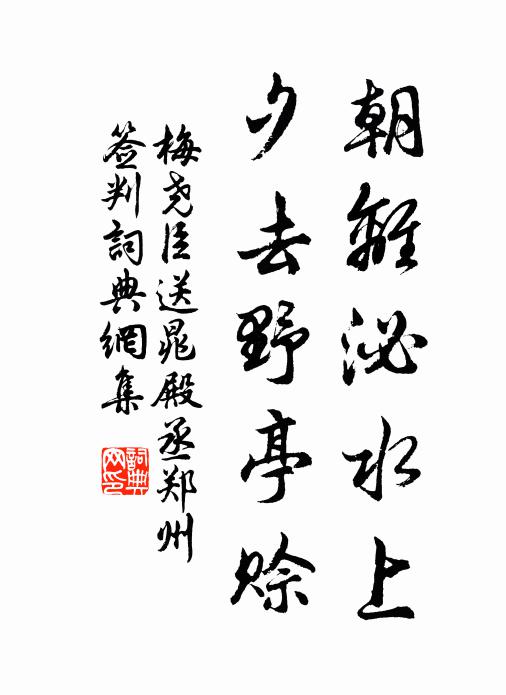 朝離泌水上
夕去野亭赊
梅尧臣送晁殿丞郑州
签判詞典網集
詞典
网印